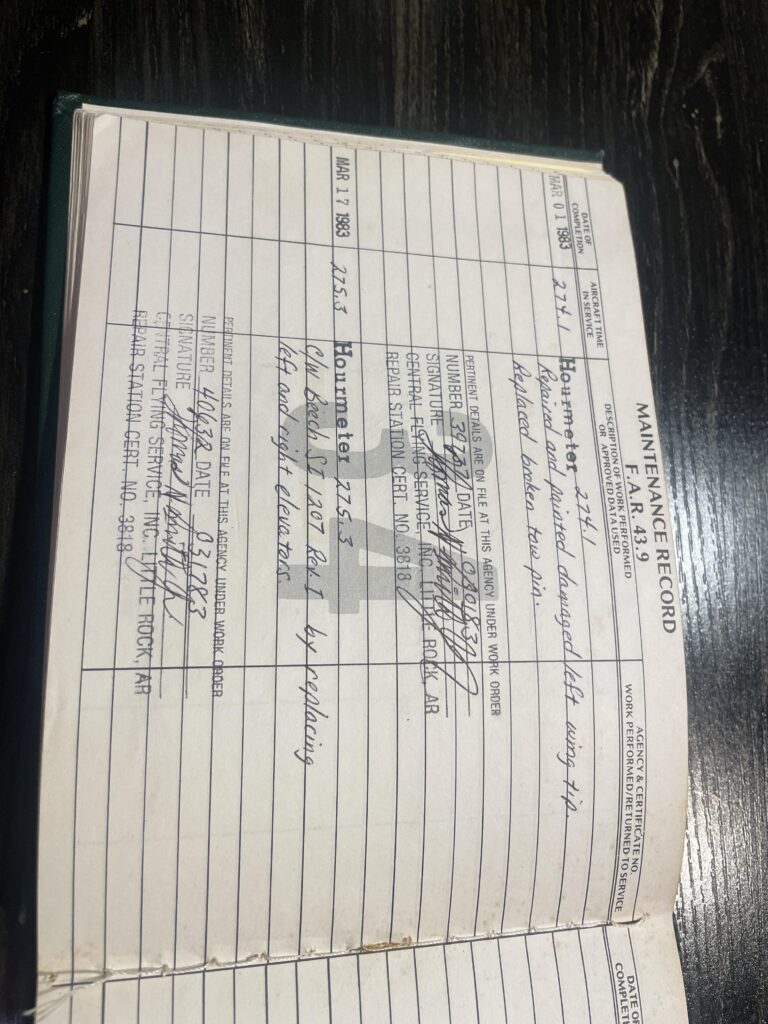 MAINTENANCE RECORD
F.A.R. 43.9
DATE OF COMPLETION
AIRCRAFT TIME IN SERVICE
DESCRIPTION OF WORK PERFORMED OR APPROVED DATA USED
AGENCY & CERTIFICATE NO. WORK PERFORMED/RETURNED TO SERVICE
MAR 01 1983 274.1 Hourmeter 274.1
Repaired and painted damaged left wing tip.
Replaced broken tow pin.
PERTINENT DETAILS ARE ON FILE AT THIS AGENCY UNDER WORK ORDER
NUMBER DATE 030183
SIGNATURE
CENTRAL FLYING SERVICE, INC. LITTLE ROCK, AR
REPAIR STATION CERT. NO. 3818
34
MAR 17 1983 275.3 Hourmeter 275.3
C/W Beech S.I. 1207 Rev. I by replacing
left and right elevators
PERTINENT DETAILS ARE ON FILE AT THIS AGENCY UNDER WORK ORDER
NUMBER 40638 DATE 031783
SIGNATURE
CENTRAL FLYING SERVICE, INC. LITTLE ROCK, AR
REPAIR STATION CERT. NO. 3818
DATE OF